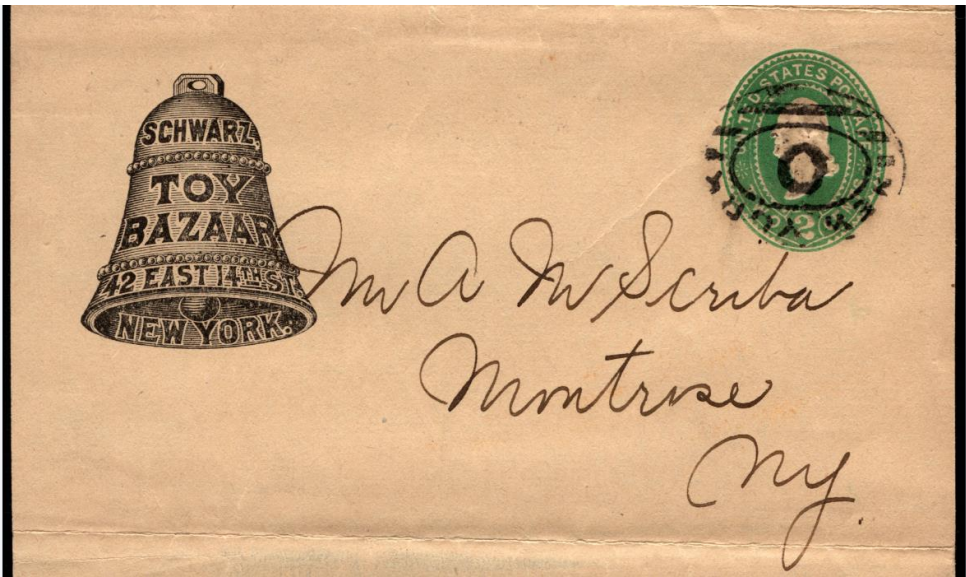 SCHWARZ,
TOY
BAZAAR
42 EAST 14TH ST.
NEW YORK.
UNITED STATES POSTAGE
2
O
NEW YORK
Mr A M Scriba
Montrose
Ny.